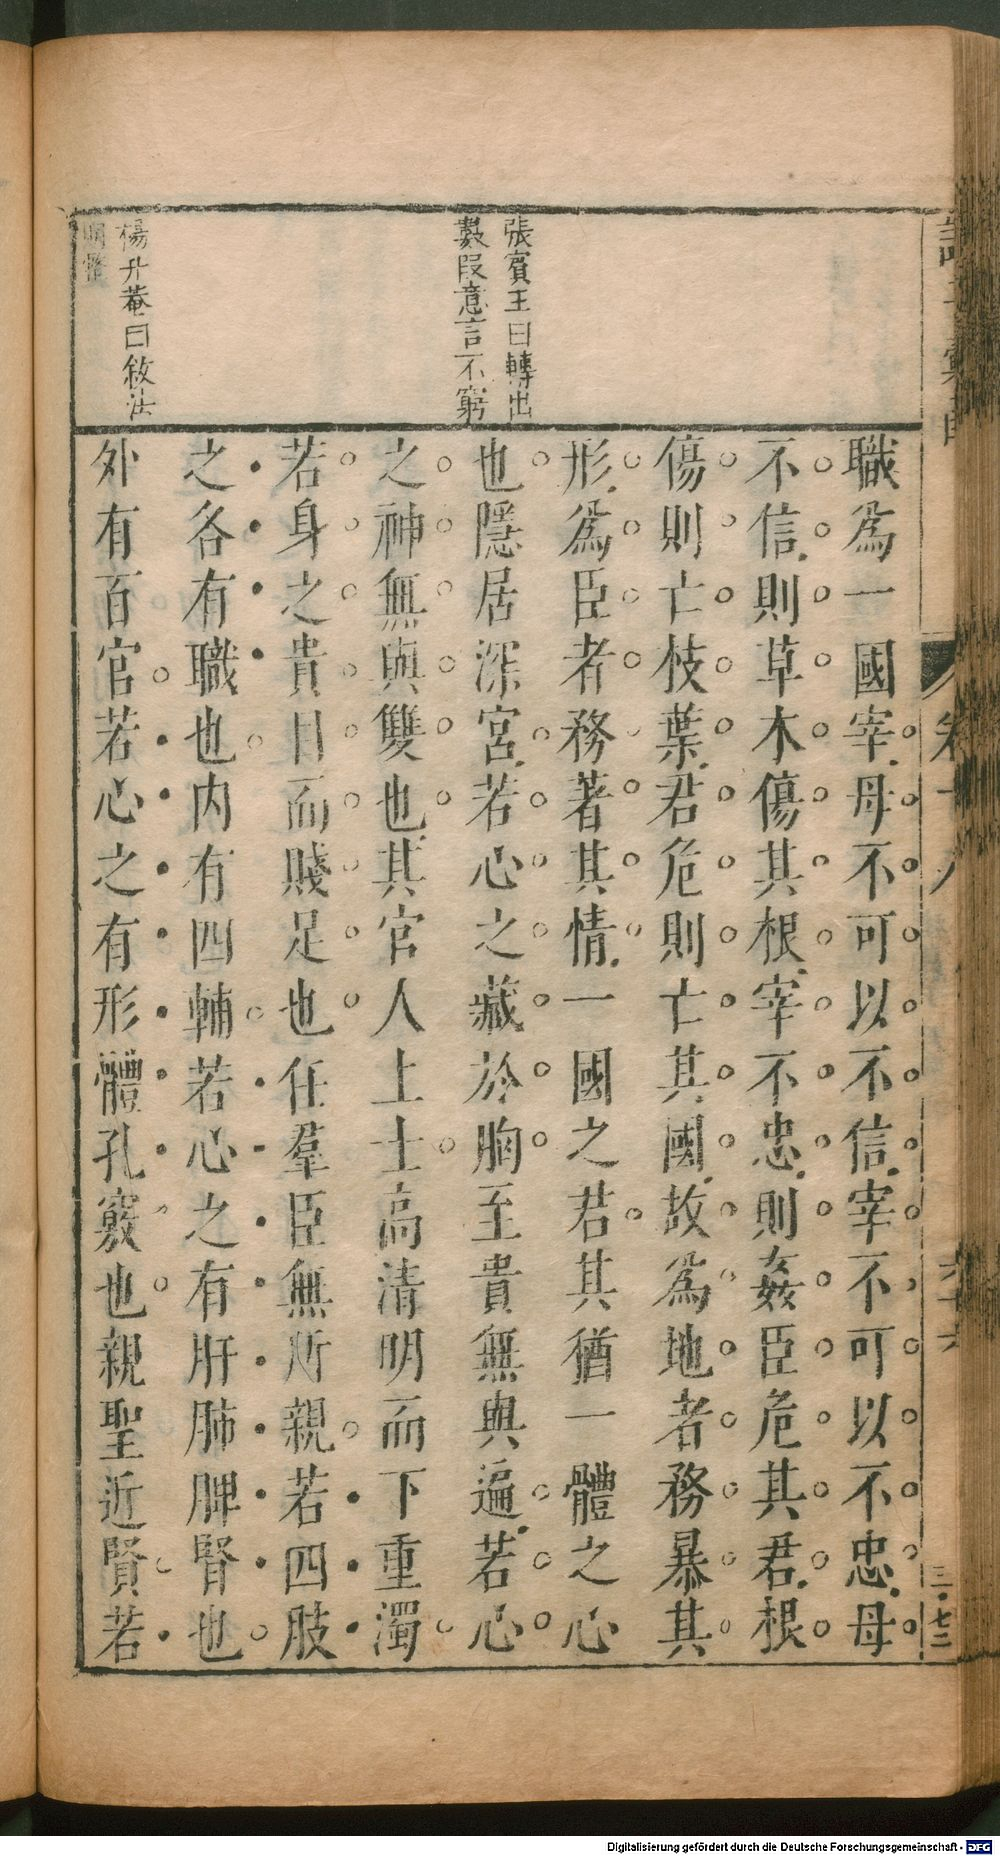 張賓王曰轉出
數段意言不窮
楊升菴曰敘法
職爲一國宰母不可以不信宰不可以不忠母
不信則草木傷其根宰不忠則姦臣危其君根
傷則亡枝葉君危則亡其國故爲地者務暴其
形爲臣者務著其情一國之君其猶一體之心
也隱居深宮若心之藏於胸至貴無與遍若心
之神無與雙也其官人上士高清明而下重濁
若身之貴目而賤足也任羣臣無所親若四肢
之各有職也内有四輔若心之有肝肺脾腎也
外有百官若心之有形體孔竅也親聖近賢若
卷十八
六十六
三・七二
Digitalisierung gefördert durch die Deutsche Forschungsgemeinschaft - DFG